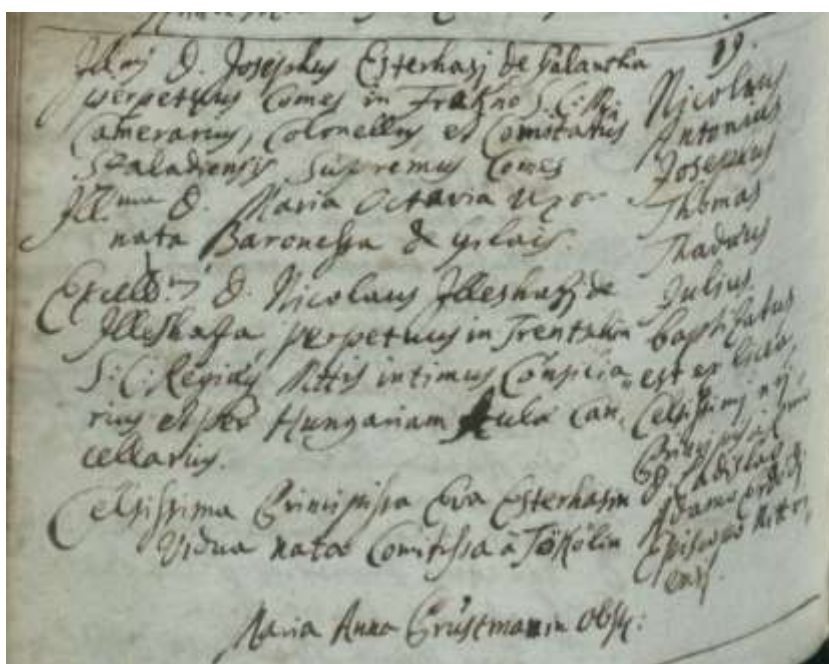 Ill.mus D. Josephus Esterhasj de Galantha
perpetuus Comes in Frakno S: C: Mtis
Camerarius, Colonellus et Comitatus
Supremus Comes
Ill.ma D. Maria Octavia Uxor
nata Baronessa de gilais.
Excell.mus D. Nicolaus Illeshasj de
Illeshasa, perpetuus in Trentshin
S: C: Regiaeq Mttis intimus Consilia„
rius et per Hungariam Aula Can„
cellarius.
Celsissima Principissa Eva Esterhasin
Vidua nata Comitissa à Tökölin
Maria Anna obst:
19.
Nicolaus
Antonius
Josephus
Thomas
Thadaeus
Julius
baptisatus
est ex licta„
Celsissimj
Principis
D. Ladislao
Adamo
Episcopo Nittri„
ensi.